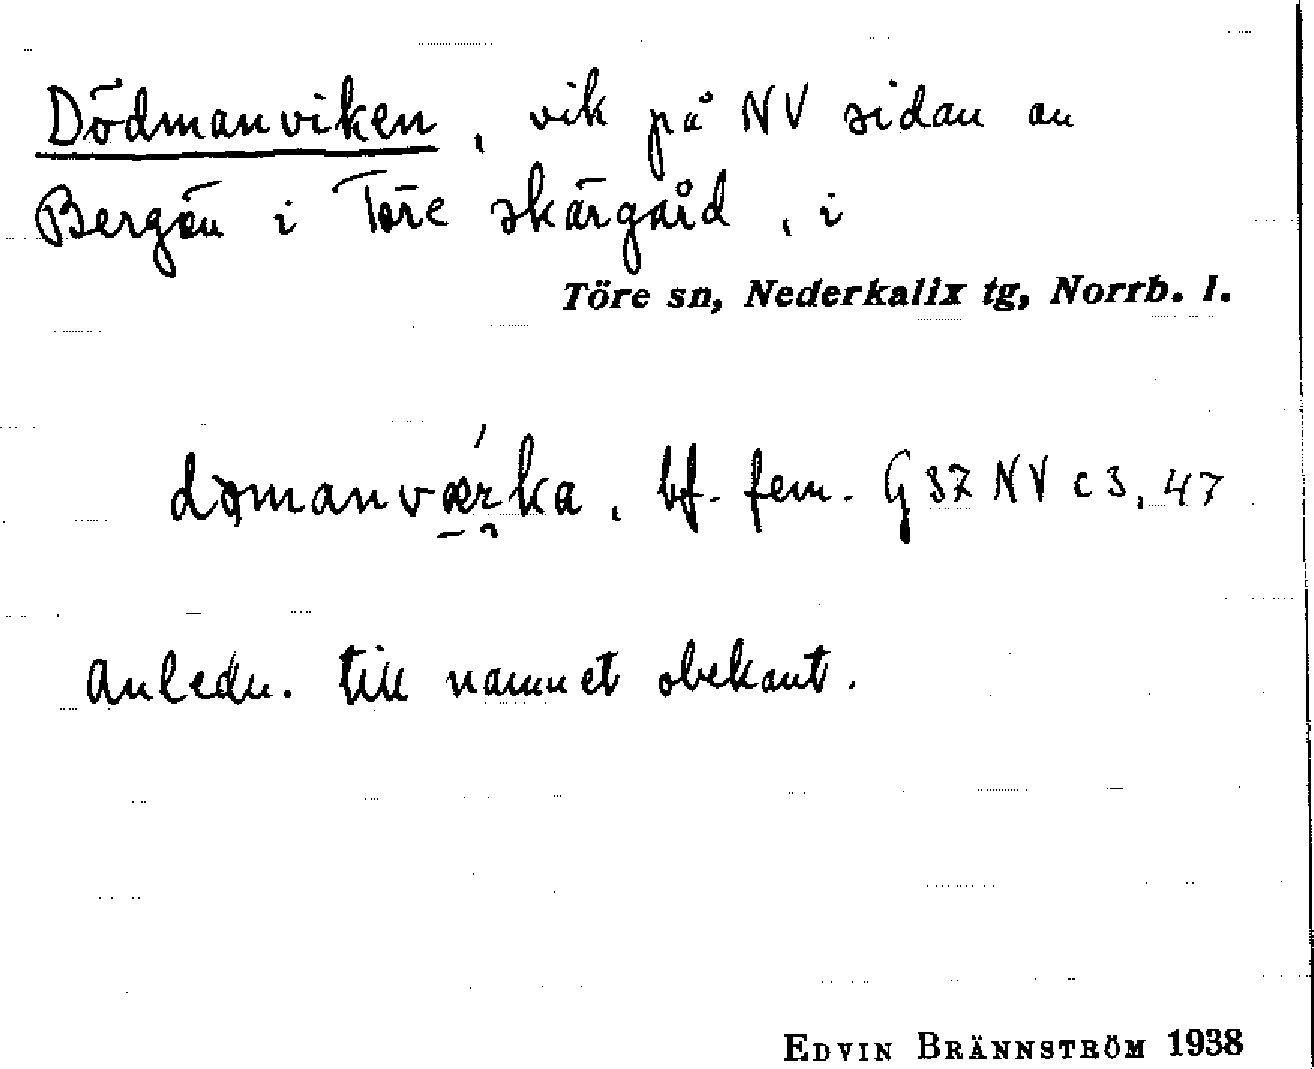 Dödmanviken, vik på NV sidan av
Bergön i Töre skärgård, i
Töre sn, Nederkalix tg, Norrb. l.
bf. fem. G 37 NV c 3, 47
Anledn. till namnet obekant.
EDVIN BRÄNNSTRÖM 1938